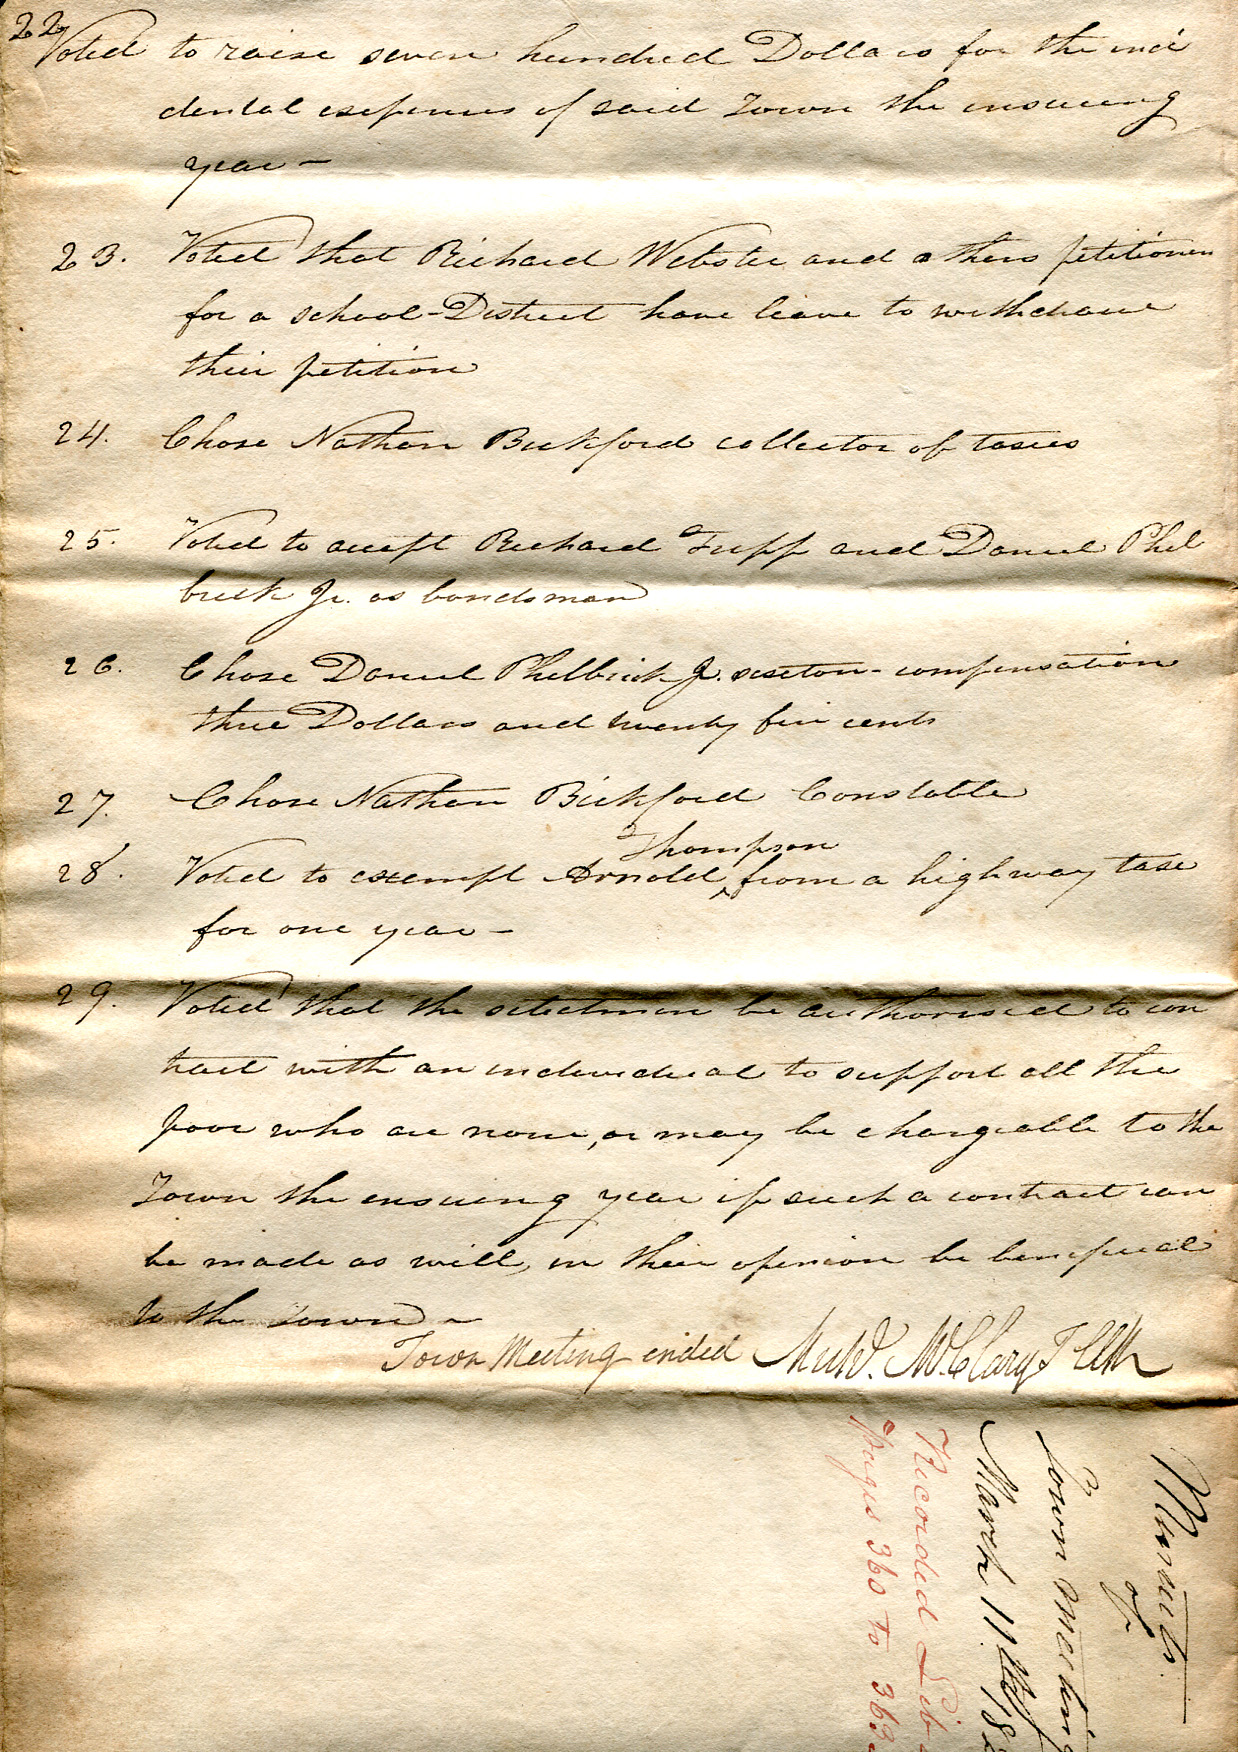 22
Voted to raise seven hundred Dollars for the inci
dental expenses of said Town the ensuing
year -
23. Voted that Richard Webster and others petitioners
for a school-District have leave to withdraw
their petition
24. Chose Nathan Bickford collector of taxes
25. Voted to accept Richard Tripp and Daniel Phil
brick Jr. as bondsman
26. Chose Daniel Philbrick Jr. sexton - compensation
three Dollars and twenty five cents
27. Chose Nathan Bickford Constable
Thompson
28. Voted to exempt Arnold ‸ from a highway tax
for one year -
29. Voted that the selectmen be authorised to con
tract with an individual to support all the
poor who are now, or may be chargeable to the
Town the ensuing year if such a contract can
be made as will, in their opinion be beneficial
to the Town -
Town Meeting ended McClary T Clk
Minutes
of
Town Meeting
March 11th 18
Recorded Lib
Pages 360 to 363